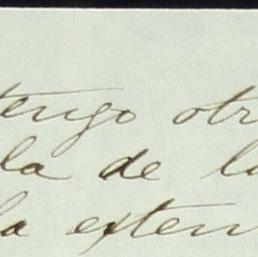 tengo otr
la de la
la exten